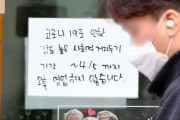 코로나 19로 인한
강도 높은 사회적 거리두기
기간 ~4/5 까지
오늘 영업하지 않습니다.